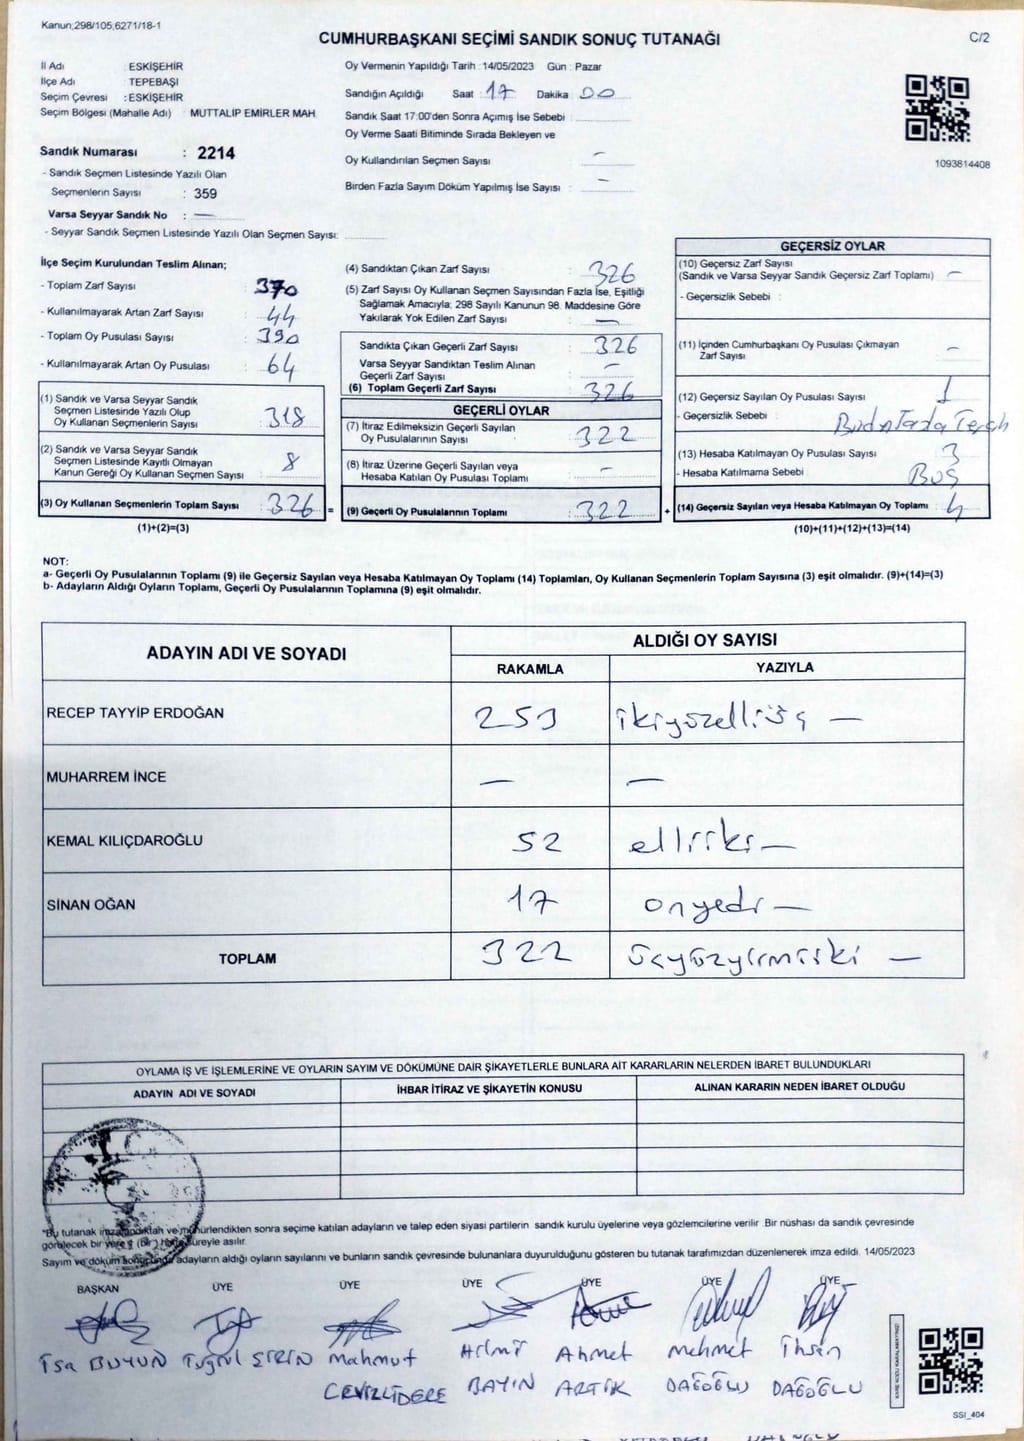 Kanun;298/105,6271/18-1
CUMHURBAŞKANI SEÇİMİ SANDIK SONUÇ TUTANAĞI
C/2
İl Adı : ESKİŞEHİR
İlçe Adı : TEPEBAŞI
Seçim Çevresi : ESKİŞEHİR
Seçim Bölgesi (Mahalle Adı) : MUTTALIP EMİRLER MAH.
Sandık Numarası : 2214
- Sandık Seçmen Listesinde Yazılı Olan
Seçmenlerin Sayısı : 359
Varsa Seyyar Sandık No : —
- Seyyar Sandık Seçmen Listesinde Yazılı Olan Seçmen Sayısı:
Oy Vermenin Yapıldığı Tarih : 14/05/2023 Gün : Pazar
Sandığın Açıldığı Saat : 17 Dakika : 00
Sandık Saat 17:00'den Sonra Açımış İse Sebebi :
Oy Verme Saati Bitiminde Sırada Bekleyen ve
Oy Kullandırılan Seçmen Sayısı : —
Birden Fazla Sayım Döküm Yapılmış İse Sayısı : —
1093814408
İlçe Seçim Kurulundan Teslim Alınan;
- Toplam Zarf Sayısı : 370
- Kullanılmayarak Artan Zarf Sayısı : 44
- Toplam Oy Pusulası Sayısı : 390
- Kullanılmayarak Artan Oy Pusulası : 64
(1) Sandık ve Varsa Seyyar Sandık
Seçmen Listesinde Yazılı Olup
Oy Kullanan Seçmenlerin Sayısı : 318
(2) Sandık ve Varsa Seyyar Sandık
Seçmen Listesinde Kayıtlı Olmayan
Kanun Gereği Oy Kullanan Seçmen Sayısı : 8
(3) Oy Kullanan Seçmenlerin Toplam Sayısı : 326 =
(1)+(2)=(3)
(4) Sandıktan Çıkan Zarf Sayısı : 326
(5) Zarf Sayısı Oy Kullanan Seçmen Sayısından Fazla İse, Eşitliği
Sağlamak Amacıyla; 298 Sayılı Kanunun 98. Maddesine Göre
Yakılarak Yok Edilen Zarf Sayısı : —
Sandıkta Çıkan Geçerli Zarf Sayısı : 326
Varsa Seyyar Sandıktan Teslim Alınan
Geçerli Zarf Sayısı : —
(6) Toplam Geçerli Zarf Sayısı : 326
GEÇERLİ OYLAR
(7) İtiraz Edilmeksizin Geçerli Sayılan
Oy Pusulalarının Sayısı : 322
(8) İtiraz Üzerine Geçerli Sayılan veya
Hesaba Katılan Oy Pusulası Toplamı : —
(9) Geçerli Oy Pusulalarının Toplamı : 322 +
GEÇERSİZ OYLAR
(10) Geçersiz Zarf Sayısı
(Sandık ve Varsa Seyyar Sandık Geçersiz Zarf Toplamı) : —
- Geçersizlik Sebebi :
(11) İçinden Cumhurbaşkanı Oy Pusulası Çıkmayan
Zarf Sayısı : —
(12) Geçersiz Sayılan Oy Pusulası Sayısı : 1
- Geçersizlik Sebebi :
(13) Hesaba Katılmayan Oy Pusulası Sayısı : 3
- Hesaba Katılmama Sebebi : Boş
(14) Geçersiz Sayılan veya Hesaba Katılmayan Oy Toplamı : 4
(10)+(11)+(12)+(13)=(14)
NOT:
a- Geçerli Oy Pusulalarının Toplamı (9) ile Geçersiz Sayılan veya Hesaba Katılmayan Oy Toplamı (14) Toplamları, Oy Kullanan Seçmenlerin Toplam Sayısına (3) eşit olmalıdır. (9)+(14)=(3)
b- Adayların Aldığı Oyların Toplamı, Geçerli Oy Pusulalarının Toplamına (9) eşit olmalıdır.
ADAYIN ADI VE SOYADI
ALDIĞI OY SAYISI
RAKAMLA YAZIYLA
RECEP TAYYİP ERDOĞAN 253 ikiyüzelliüç —
MUHARREM İNCE — —
KEMAL KILIÇDAROĞLU 52 elliiki —
SİNAN OĞAN 17 onyedi —
TOPLAM 322 üçyüzyirmiiki —
OYLAMA İŞ VE İŞLEMLERİNE VE OYLARIN SAYIM VE DÖKÜMÜNE DAİR ŞİKAYETLERLE BUNLARA AİT KARARLARIN NELERDEN İBARET BULUNDUKLARI
ADAYIN ADI VE SOYADI İHBAR İTİRAZ VE ŞİKAYETİN KONUSU ALINAN KARARIN NEDEN İBARET OLDUĞU
*Bu tutanak imzalandıktan ve mühürlendikten sonra seçime katılan adayların ve talep eden siyasi partilerin sandık kurulu üyelerine veya gözlemcilerine verilir. Bir nüshası da sandık çevresinde
görülecek bir yere 1 (bir) hafta süreyle asılır.
Sayım ve döküm sonucunda adayların aldığı oyların sayılarını ve bunların sandık çevresinde bulunanlara duyurulduğunu gösteren bu tutanak tarafımızdan düzenlenerek imza edildi. 14/05/2023
BAŞKAN ÜYE ÜYE ÜYE ÜYE ÜYE ÜYE
İsa BUYUN Tuğrul ŞİRİN Mahmut Hilmi Ahmet Mehmet İhsan
CEVİZLİDERE BAYIN ARTIK DAĞOĞLU DAĞOĞLU
SSI_404